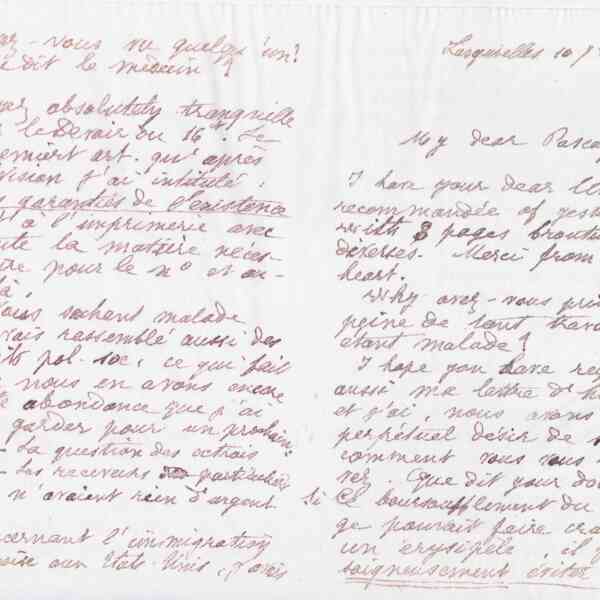 ez-vous vu quelqu'un?
dit le médecin?
absolutely tranquille
le Devoir du 16. Le
art. qu'après
vision j'ai intitulé :
garanties de l'existence
à l'imprimerie avec
la matière néces-
pour le n° et au-
là.
Vous sachant malade
rassemblé aussi des
pol. soc. ce qui fait
nous en avons encore
abondance que j'ai
garder pour un prochain
- La question des octrois
- Les receveurs particuliers
n'avaient rien d'argent
cernant l'immigration
aux Etats-Unis, j'avais
Lesquielles 10
My dear Pasca
I have your dear
recommandée of yes
with 8 pages
diverses. Merci from
heart.
Why avez-vous pri
peine de tant trav
étant malade?
I hope you have re
aussi ma lettre d'h
et j'ai, nous avons
perpétuel désir de
comment vous vous
vez. Que dit your do
Si ce boursoufflement du
ge pouvait faire cra
un érysipèle il
soigneusement éviter